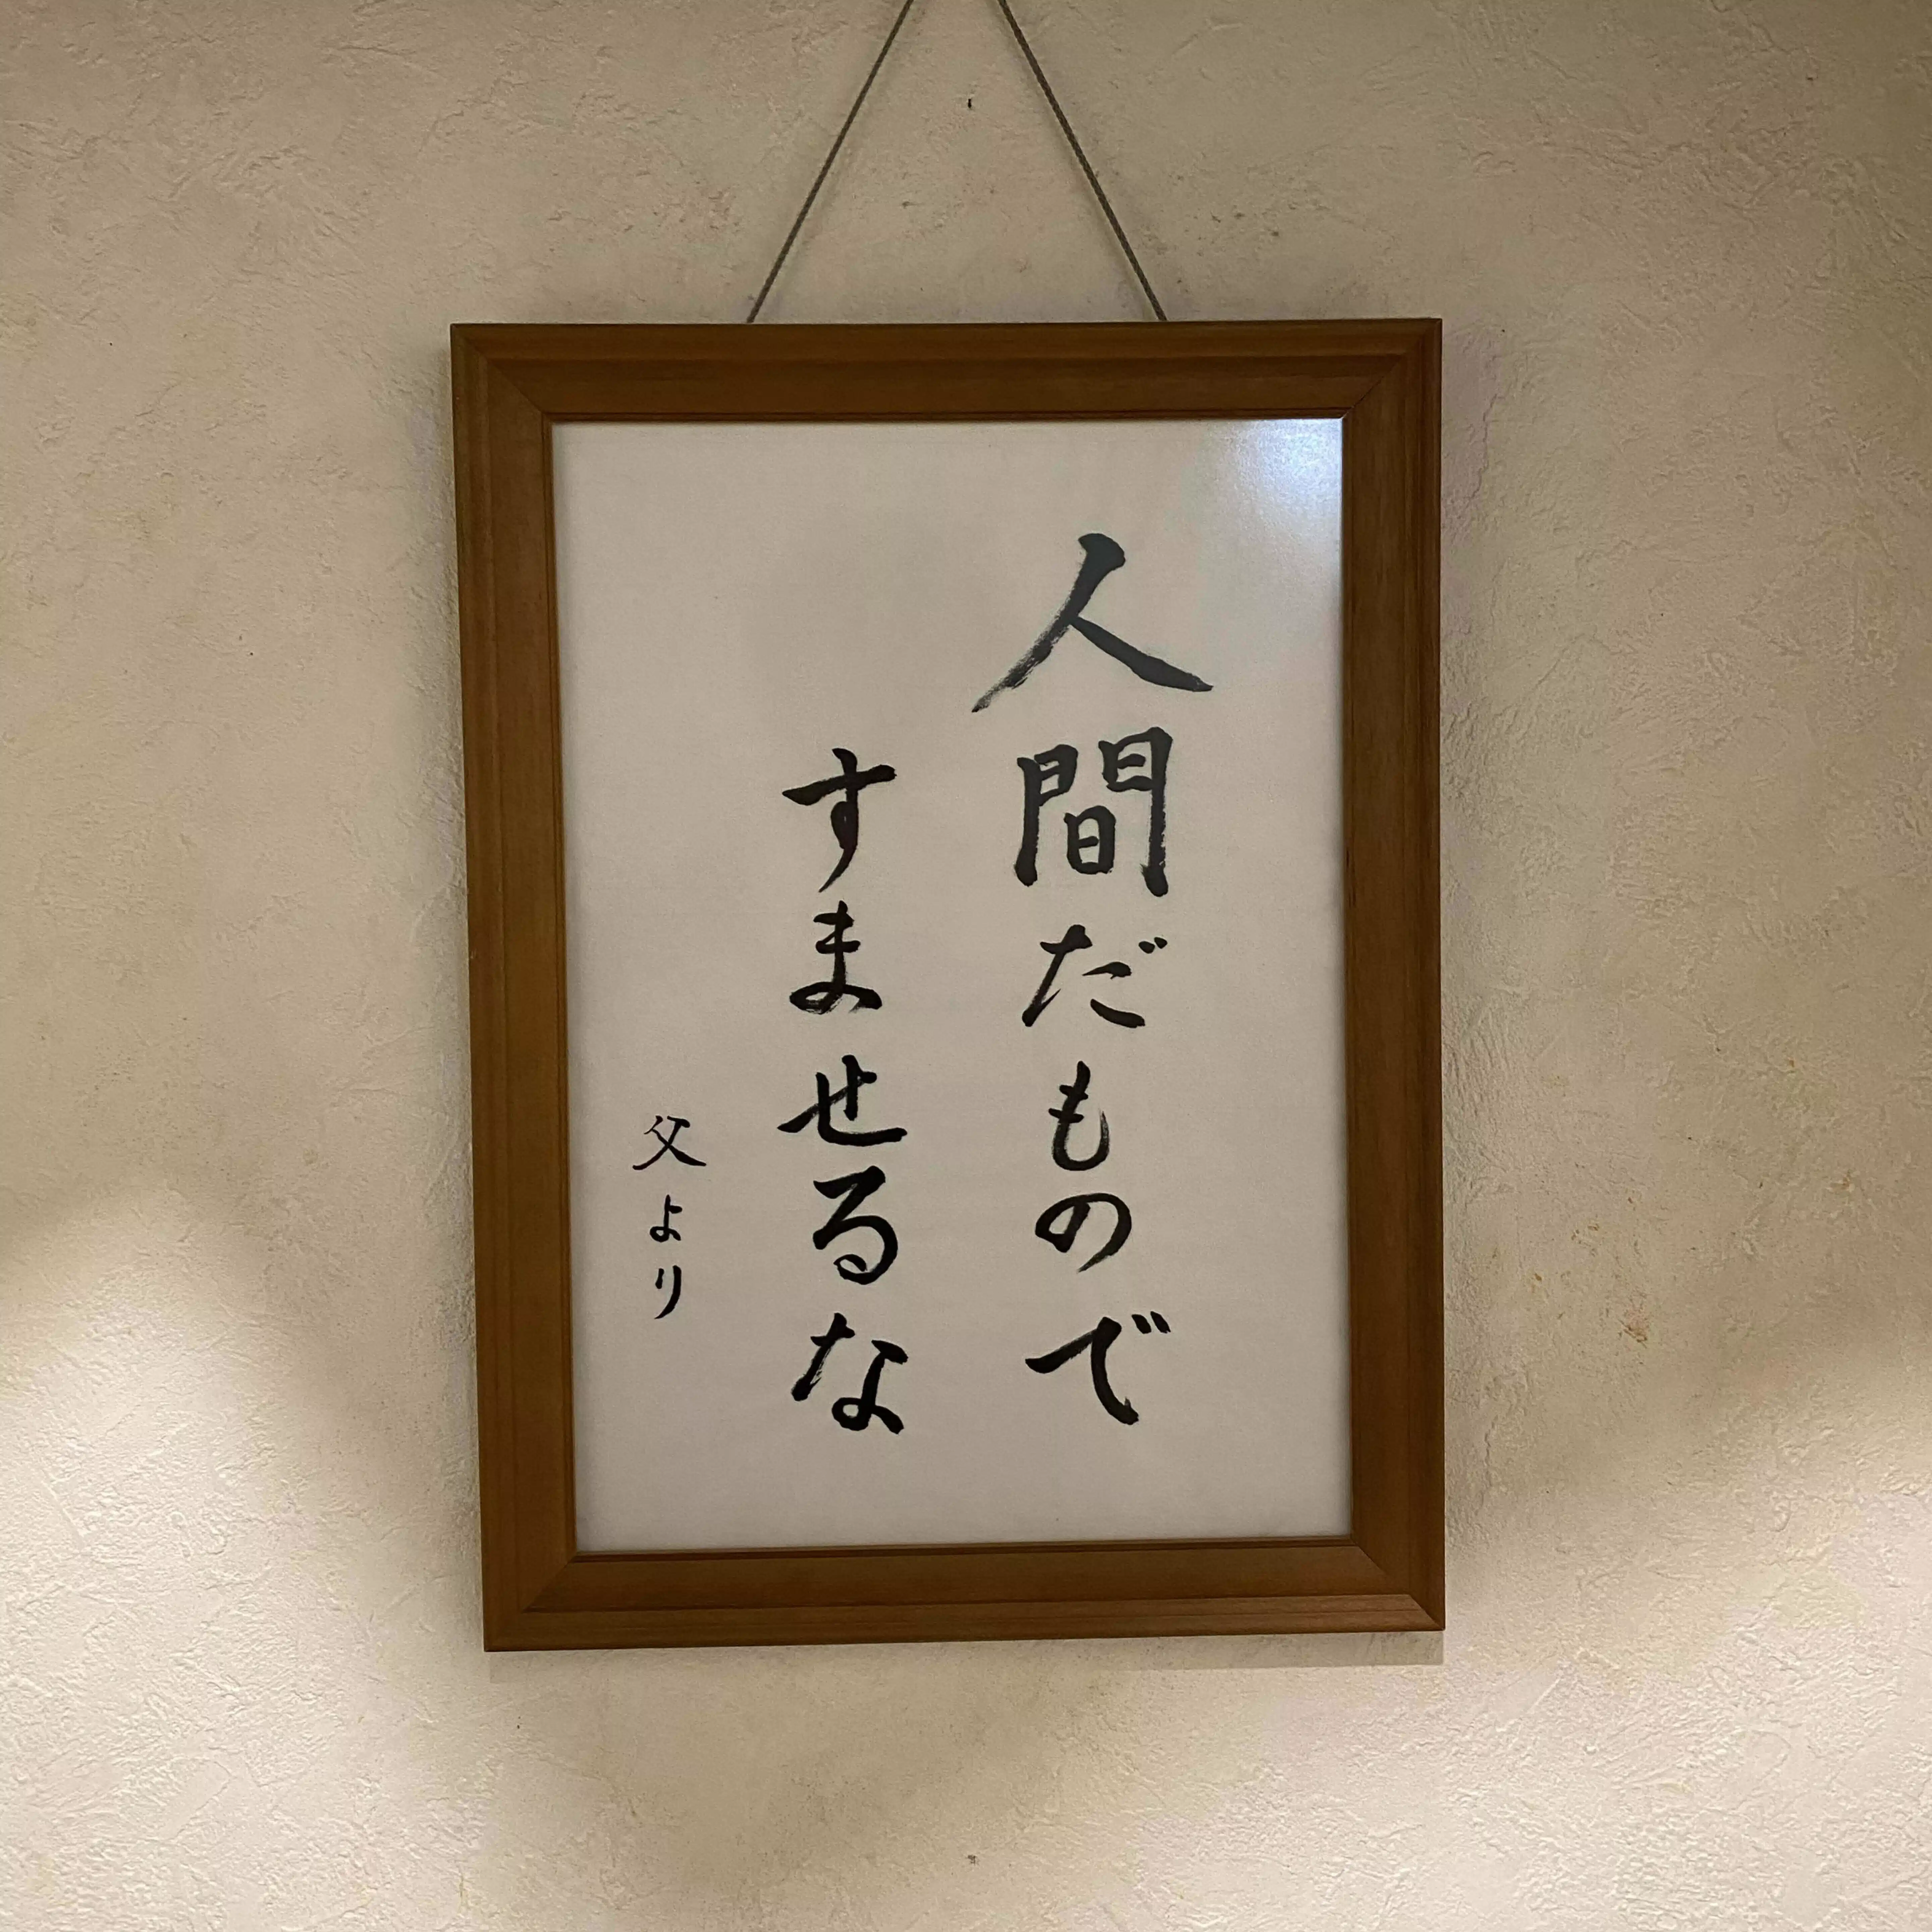 人間だもので
すませるな
父より